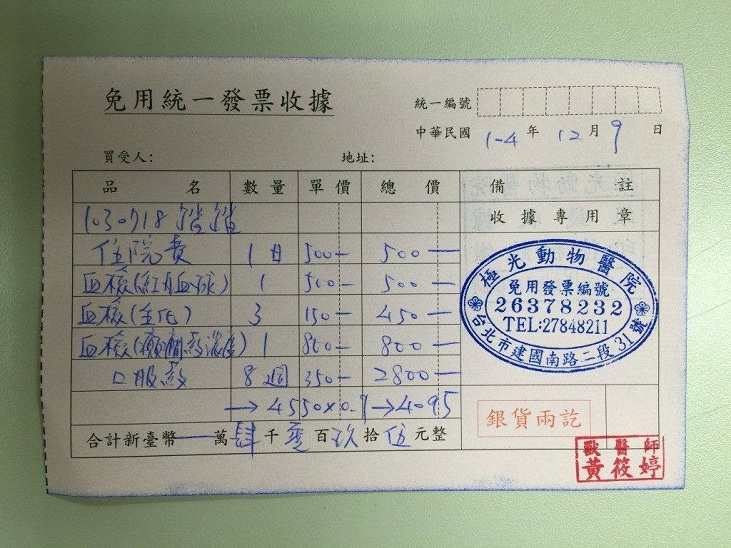 免用統一發票收據
統一編號
中華民國 1-4 年 12 月 9 日
買受人： 地址：
品 名 數量 單價 總價 備註
1030718 踏踏 收據專用章
住院費 1日 500- 500-
血檢(紅血球) 1 500- 500-
血檢(生化) 3 150- 450-
血檢(癲癇藥濃度) 1 800- 800-
口服藥 8週 350- 2800-
→ 4550x0.9 → 4095
合計新臺幣 萬 肆 千 零 百 玖 拾 伍 元整
極光動物醫院
免用發票編號
26378232
TEL:27848211
台北市建國南路二段31號
銀貨兩訖
獸醫師
黃筱婷